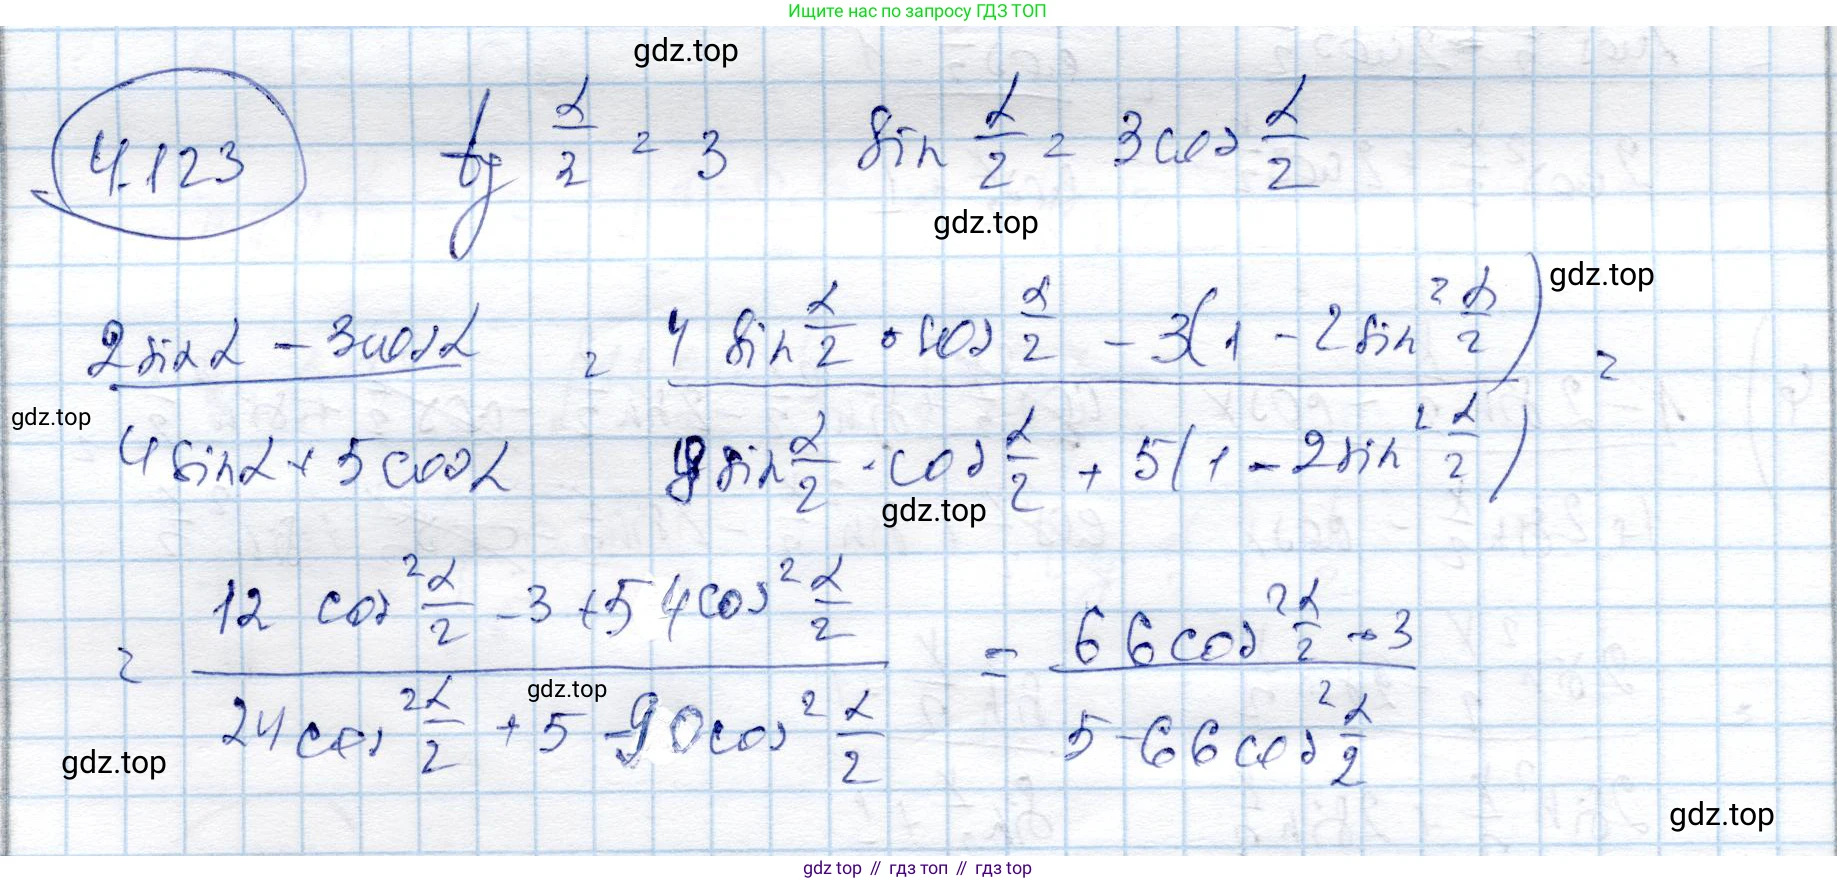 Ищите нас по запросу ГДЗ ТОП
gdz.top
4.123 tg α/2 = 3 sin α/2 = 3cos α/2
gdz.top
gdz.top
(2sinα - 3cosα)/(4sinα + 5cosα) = (4 sin α/2 · cos α/2 - 3(1 - 2sin² α/2))/(8sin α/2 · cos α/2 + 5(1 - 2sin² α/2)) =
gdz.top
gdz.top
= (12 cos² α/2 - 3 + 54cos² α/2)/(24cos² α/2 + 5 - 90cos² α/2) = (66cos² α/2 - 3)/(5 - 66cos² α/2)
gdz.top
gdz.top
gdz.top
gdz top // гдз топ // гдз top